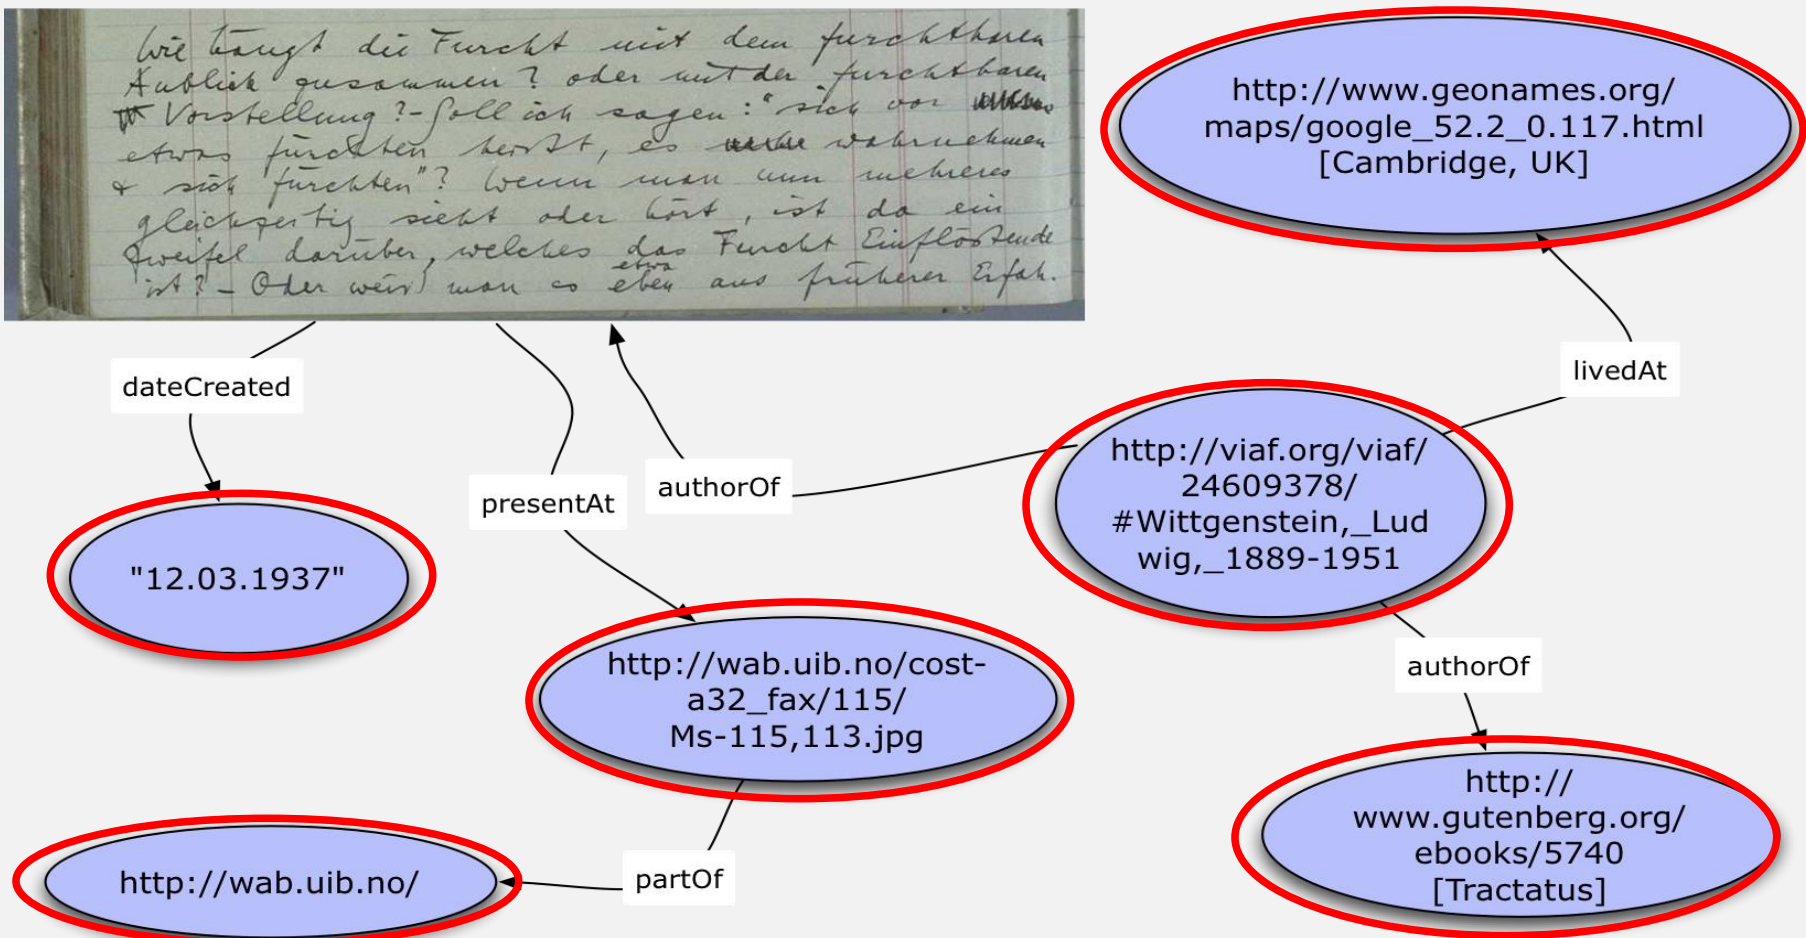 Wie hängt die Furcht mit dem furchtbaren
Anblick zusammen? oder mit der furchtbaren
Vorstellung? - Soll ich sagen: "sich vor
etwas fürchten heißt, es wahrnehmen
& sich fürchten"? Wenn man nun mehreres
gleichzeitig sieht oder hört, ist da ein
Zweifel darüber, welches das Furcht Einflößende
ist? - Oder weiß man es eben aus früherer Erfah-
etwa
http://www.geonames.org/
maps/google_52.2_0.117.html
[Cambridge, UK]
livedAt
dateCreated
presentAt
authorOf
http://viaf.org/viaf/
24609378/
#Wittgenstein,_Lud
wig,_1889-1951
"12.03.1937"
http://wab.uib.no/cost-
a32_fax/115/
Ms-115,113.jpg
authorOf
http://
www.gutenberg.org/
ebooks/5740
[Tractatus]
http://wab.uib.no/
partOf